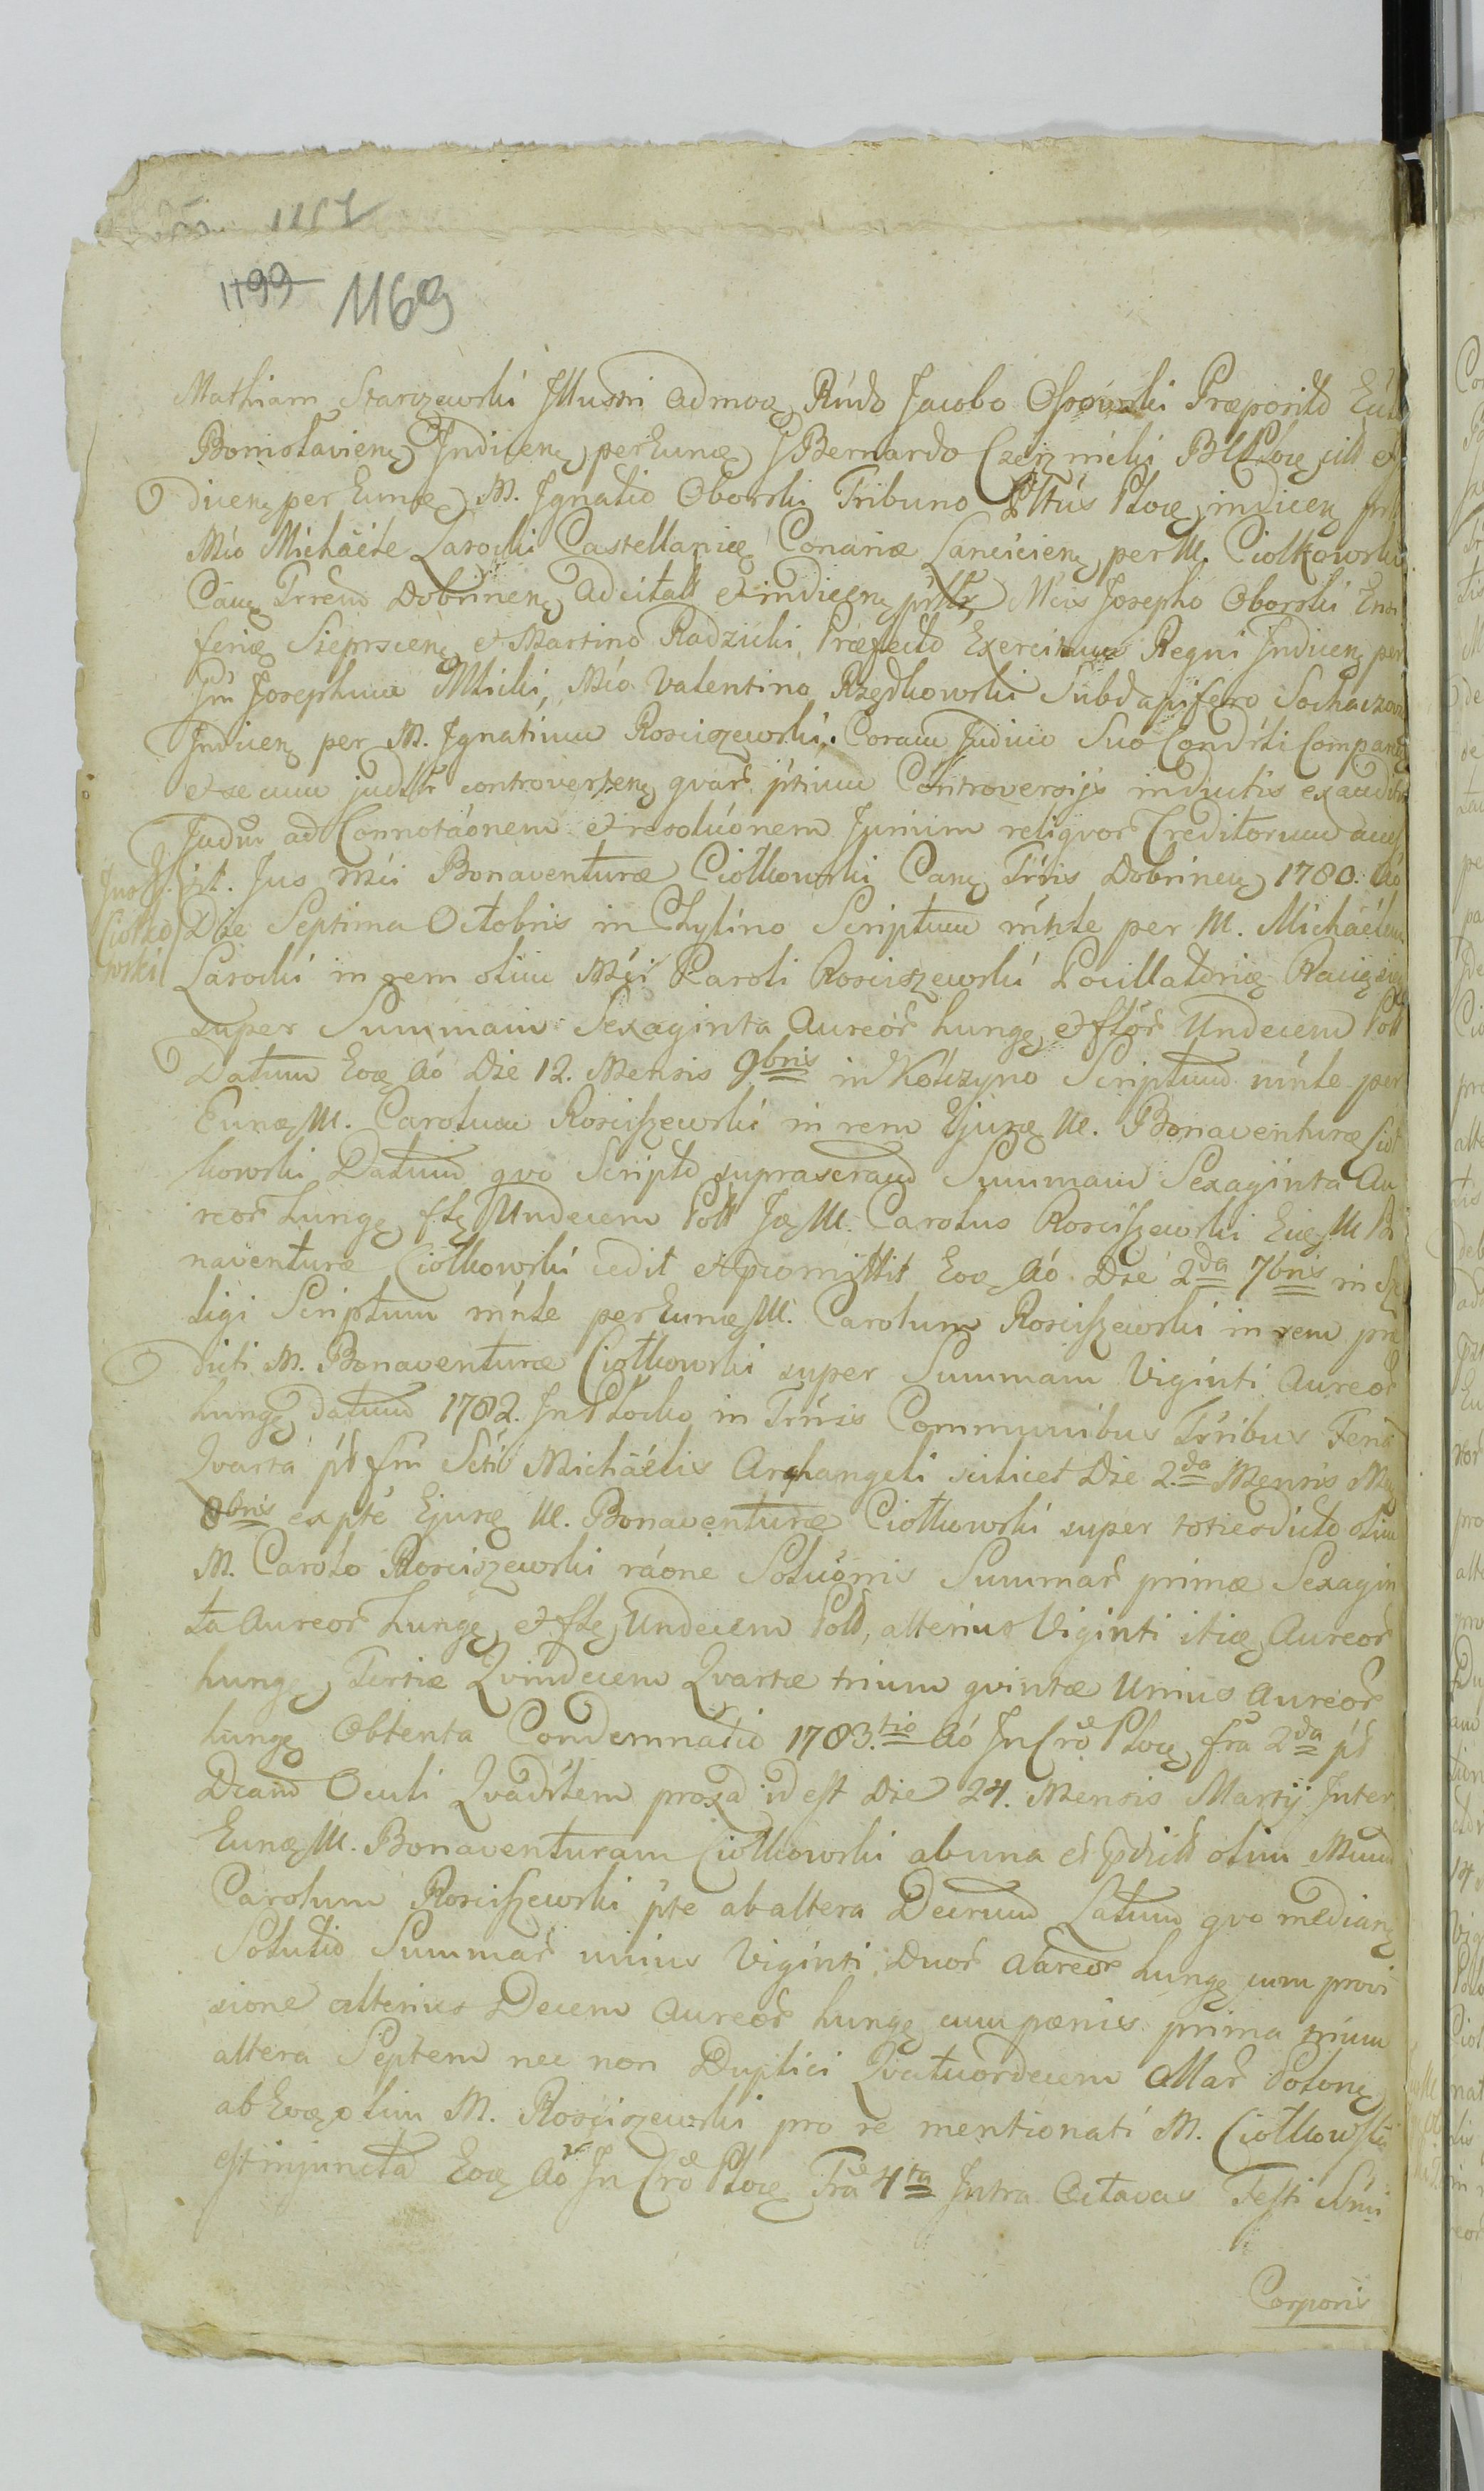 1157
1199 1169
Mathiam Starczewski Illustri admoq Rndo Jacobo Præposito
Bonislavienq Indicenq per Eunq Bernardo Ploce
dicenq per Eunq M. Ignatio Oborski Tribuno Ploce indicenq
Mío Michaële Larocki Castellanicę Conariæ Lancicienq per M. Ciołkowski
Cauq Trren Dobrinenq adcitatt et indicenq Mcis Josepho Oborski Ensi
feriq Sieprscienq et Martino Radzicki Præfecto Exercituus Regni Indicenq per
Josephum Mlicki, Mío Valentino Rzędkowski Subdapifero Sochaczov
Indicenq per M. Ignatium Rosciszewski. Coram Judicio Suo Condrti Comparenq
et secum judltr controvertenq qvar ptium Controversijs inductis exauditis
Judm ad Connotáonem et resoluónem Jurium reliqvor Creditorum
Jus M. Ciołko wski
Jus Mci Bonaventuræ Ciołkowski Canq Trris Dobrinenq 1780. Aó
Die Septima Octobris in Chylino Scriptum mnte per M. Michaëlem
Larocki in rem olim Mci Karoli Rosciszewski Pocillatoriq Raciązienq
super Summam Sexaginta Aureor hungq et flor Undecem Poll
Datum Eoq Aó Die 12. Mensis 9bris in Scriptum mnte per
Eunq M. Carolum Rosciszewski in rem Ejusq M. Bonaventuræ Cioł
kowski Datum qvo Scripto suprascram Summam Sexaginta Au
reor hungq flq Undecem Poll Jq M. Carolus Rosciszewski Eieq M Bo
naventuræ Ciołkowski cedit et promittit Eoq Aó Die 2da 7bris in
ligi Scriptum mnte per Eunq M. Carolum Rosciszewski in rem præ
dicti M. Bonaventuræ Ciołkowski super Summam Viginti Aureor
hungq datum 1782. In Plocko in Trris Communibus Trribus Feria
Qvarta pt fm Scti Michaëlis Archangeli scilicet Die 2da Mensis
8bris ex pte Ejusq M. Bonaventuræ Ciołkowski super totiesdicto olim
M. Carolo Rosciszewski ráone Soluónis Summar primæ Sexagin
ta Aureor hungq et flq Undecem Poll, alterius Viginti itiq Aureor
hungq Tertiæ Qvindecem Qvartæ trium qvintæ Unius Aureor
hungq Obtenta Condemnatio 1783.tio Aó In Cro Ploce fra 2da pt
Dcam Oculi Qvadrlem proxa id est Die 24. Mensis Martij Inter
Eunq M. Bonaventuram Ciołkowski ab una et olim Mcum
Carolum Rosciszewski pte ab altera Decrum Latum qvo medianq
Solutio Summar unius Viginti Duor Aureor hungq cum provi
sione alterius Decem Aureor hungq cum pænis prima trium
altera Septem nec non Duplici Qvatuordecem Mar Polonq
ab Eoq olim M. Rosciszewski pro re mentionati M. Ciołkowski
est injuncta Eoq Aó In Cro Ploce Fra 4ta Intra Octavas Festi Ssmi
Corporis